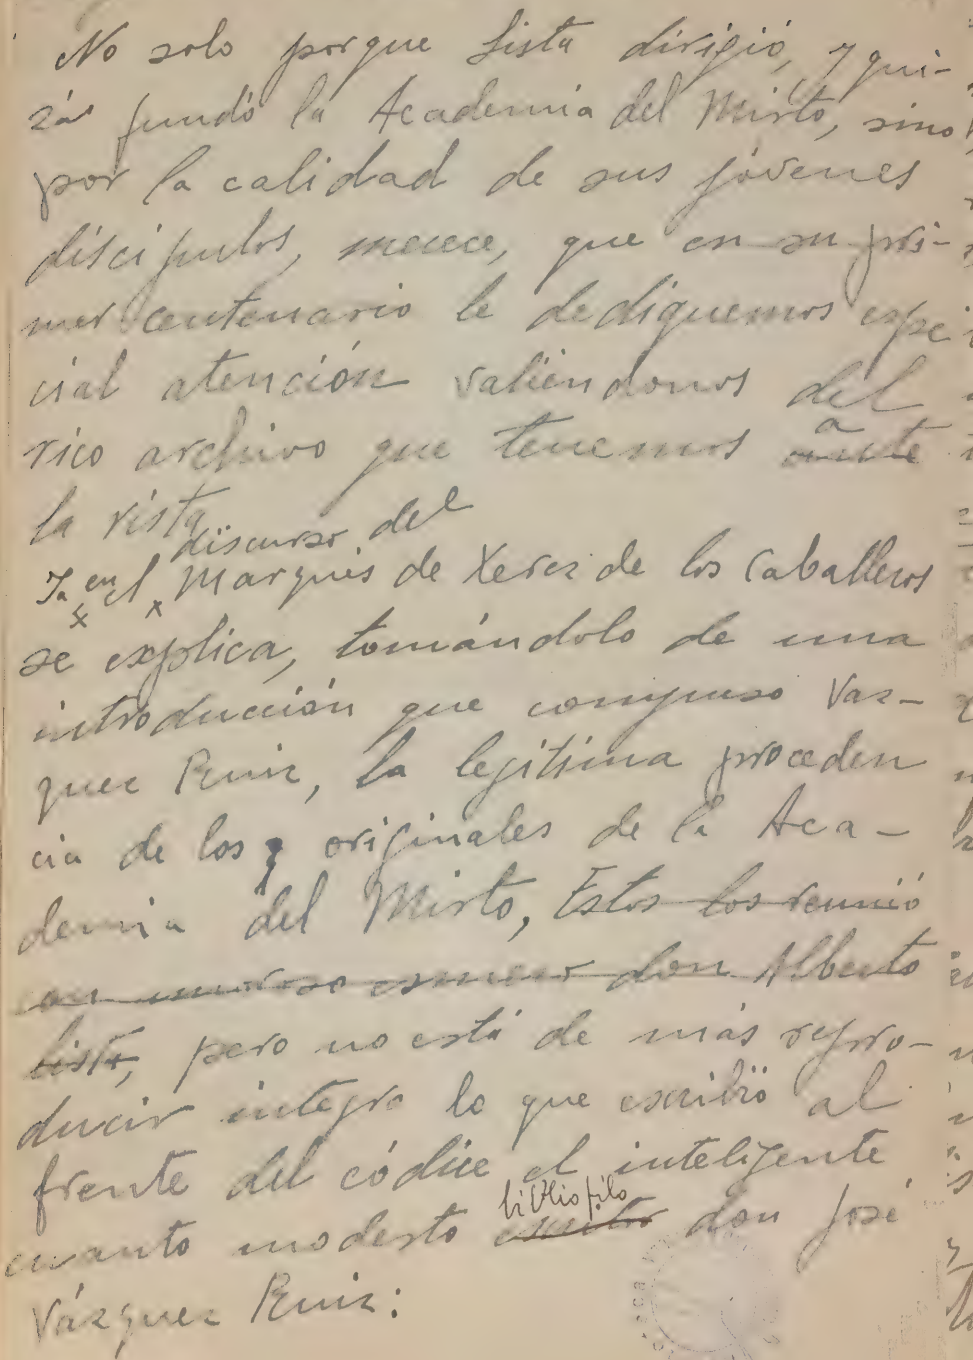 No solo porque Lista dirigió, y qui-
zá fundó la Academia del Mirto, sino
por la calidad de sus jóvenes
discipulos, merece, que en su pri-
mer centenario le dediquemos espe
cial atención valiéndonos del
rico archivo que tenemos ante a
la vista
discurso del
Ya en el Marqués de Xerez de los Caballeros
se explica, tomándolo de una
introducción que compuso Vaz-
quez Ruiz, la legítima proceden
cia de los originales de la Aca-
demia del Mirto, Estos los reunió
con amoroso esmero don Alberto
Lista, pero no está de más repro-
ducir integro lo que escribió al
frente del códice el inteligente
bibliofilo
cuanto modesto escritor don José
Vázquez Ruiz: